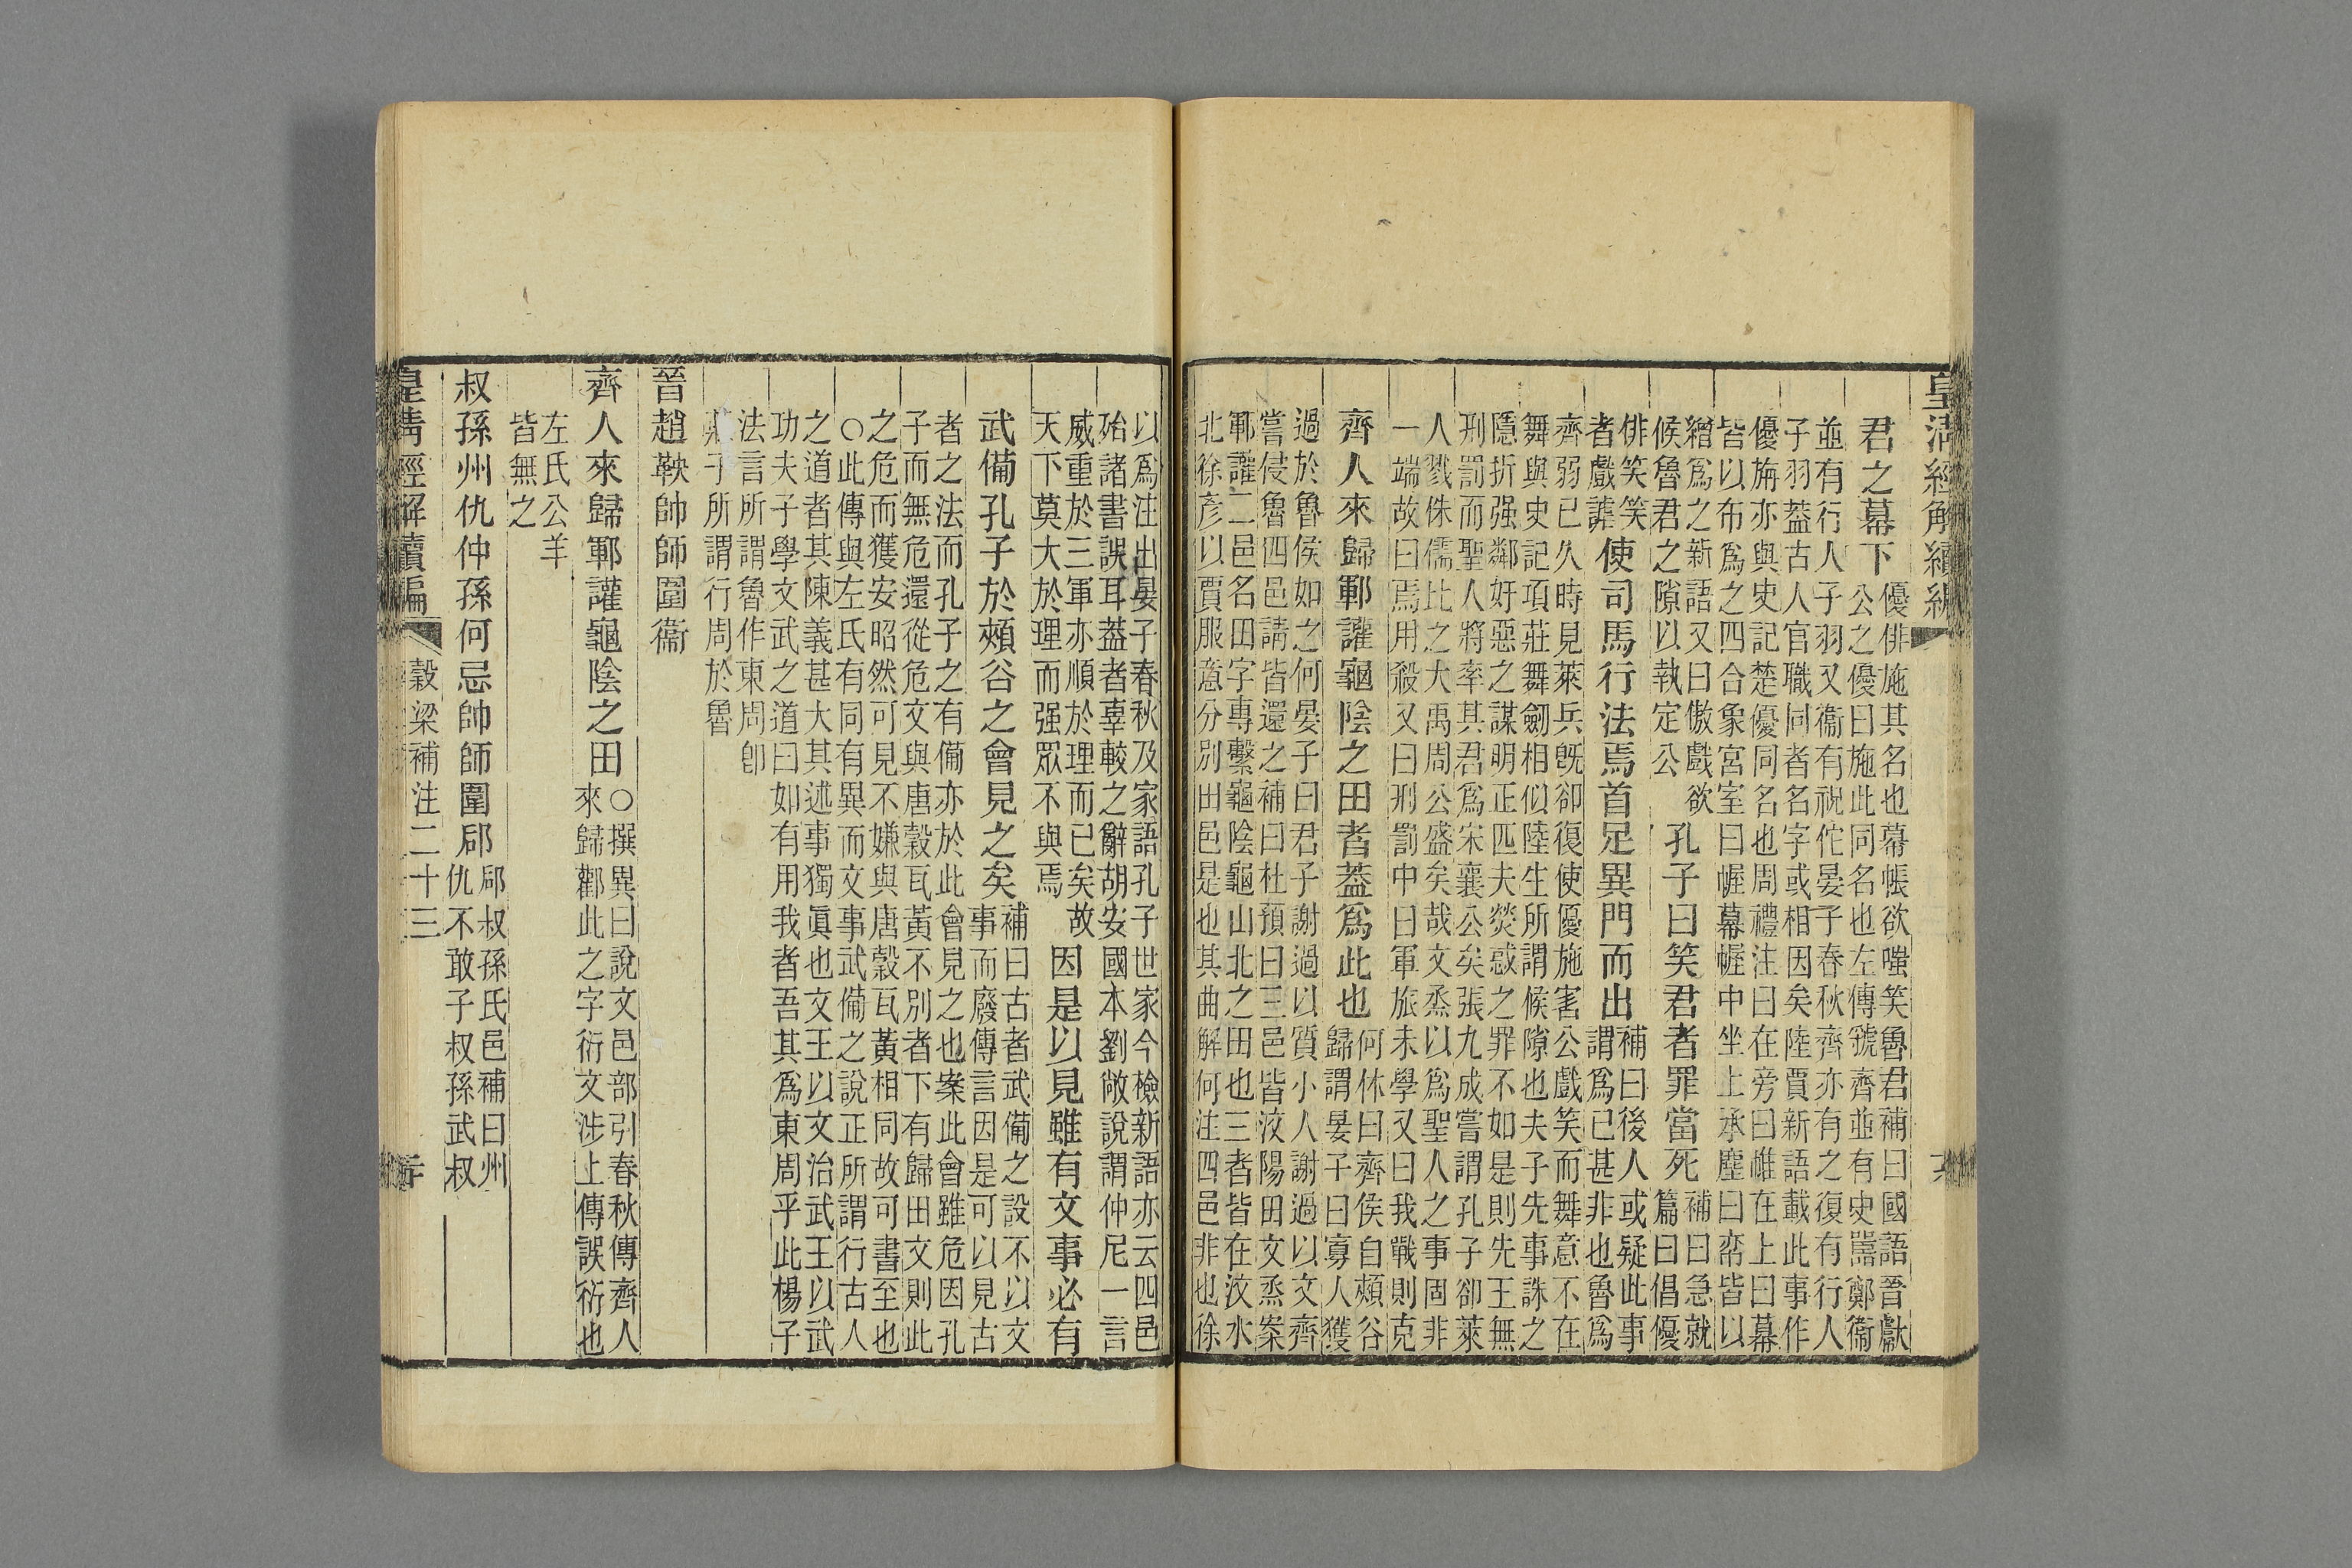 皇清經解續編
君之幕下
優俳施其名也幕帳欲嗤笑魯君補曰國語晉獻
公之優曰施此同名也左傳虢齊並有史嚚鄭衞
並有行人子羽又衞有祝佗晏子春秋齊亦有之復有行人
子羽葢古人官職同者名字或相因矣陸賈新語載此事作
優旃亦與史記楚優同名也周禮注曰在旁曰帷在上曰幕
皆以布爲之四合象宮室曰幄幕幄中坐上承塵曰帟皆以
繒爲之新語又曰傲戲欲
候魯君之隙以執定公
孔子曰笑君者罪當死
補曰急就
篇曰倡優
俳笑笑
者戲謔
使司馬行法焉首足異門而出
補曰後人或疑此事
謂爲已甚非也魯爲
齊弱已久時見萊兵旣卻復使優施害公戲笑而舞意不在
舞與史記項莊舞劒相似陸生所謂候隙也夫子先事誅之
隱折强鄰奸惡之謀明正匹夫熒惑之罪不如是則先王無
刑罰而聖人將率其君爲宋襄公矣張九成嘗謂孔子卻萊
人戮侏儒比之大禹周公盛矣哉文烝以爲聖人之事固非
一端故曰焉用殺又曰刑罰中曰軍旅未學又曰我戰則克
齊人來歸鄆讙龜陰之田者葢爲此也
何休曰齊侯自頰谷
歸謂晏子曰寡人獲
過於魯侯如之何晏子曰君子謝過以質小人謝過以文齊
嘗侵魯四邑請皆還之補曰杜預曰三邑皆汶陽田文烝案
鄆讙二邑名田字專繫龜陰龜山北之田也三者皆在汶水
北徐彥以賈服意分別田邑是也其曲解何注四邑非也徐
以爲注出晏子春秋及家語孔子世家今檢新語亦云四邑
殆諸書誤耳葢者辜較之辭胡安國本劉敞說謂仲尼一言
威重於三軍亦順於理而已矣故
天下莫大於理而强眾不與焉
因是以見雖有文事必有
武備孔子於頰谷之會見之矣
補曰古者武備之設不以文
事而廢傳言因是可以見古
者之法而孔子之有備亦於此會見之也案此會雖危因孔
子而無危還從危文與唐穀瓦黃不別者下有歸田文則此
之危而獲安昭然可見不嫌與唐穀瓦黃相同故可書至也
○此傳與左氏有同有異而文事武備之說正所謂行古人
之道者其陳義甚大其述事獨眞也文王以文治武王以武
功夫子學文武之道曰如有用我者吾其爲東周乎此楊子
法言所謂魯作東周卽
莊子所謂行周於魯
晉趙鞅帥師圍衞
齊人來歸鄆讙龜陰之田
○撰異曰說文邑部引春秋傳齊人
來歸鄆此之字衍文涉上傳誤衍也
左氏公羊
皆無之
叔孫州仇仲孫何忌帥師圍郈
郈叔孫氏邑補曰州
仇不敢子叔孫武叔
皇清經解續編
穀梁補注二十三